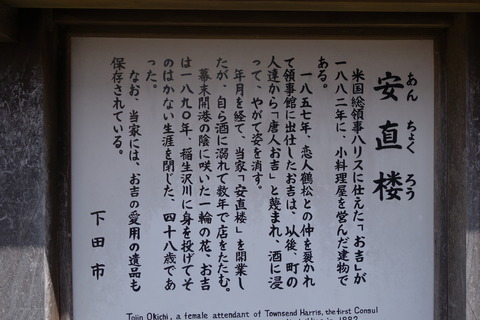 安直楼
あんちょくろう
米国総領事ハリスに仕えた「お吉」が
一八八二年に、小料理屋を営んだ建物で
ある。
一八五七年、恋人鶴松との仲を裂かれ
て領事館に出仕したお吉は、以後、町の
人達から「唐人お吉」と蔑まれ、酒に浸
って、やがて姿を消す。
年月を経て、当家「安直楼」を開業し
たが、自ら酒に溺れて数年で店をたたむ。
幕末開港の陰に咲いた一輪の花、お吉
は一八九〇年、稲生沢川に身を投げてそ
のはかない生涯を閉じた、四十八歳であ
った。
なお、当家には、お吉の愛用の遺品も
保存されている。
下田市
Tojin Okichi, a female attendant of Townsend Harris, the first Consul